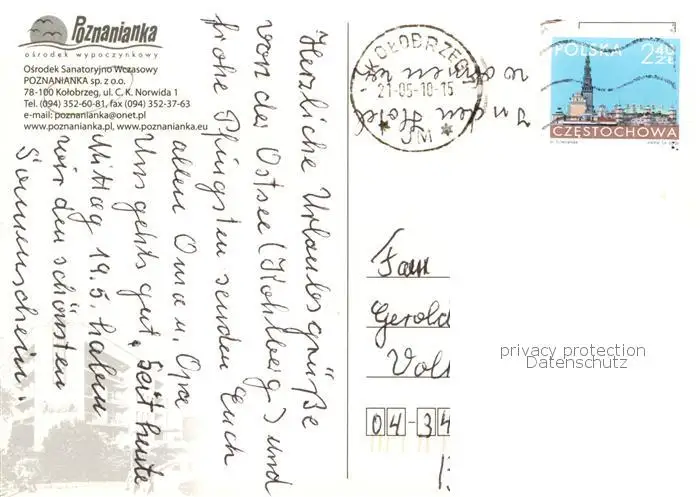 Poznanianka
ośrodek wypoczynkowy
Ośrodek Sanatoryjno Wczasowy
POZNANIANKA sp. z o.o.
78-100 Kołobrzeg, ul. C. K. Norwida 1
Tel. (094) 352-60-81, fax (094) 352-37-63
e-mail: poznanianka@onet.pl
www.poznanianka.pl, www.poznanianka.eu
Herzliche Urlaubsgrüße
von der Ostsee (Kohlberg) und
frohe Pfingsten senden Euch
allen Oma u. Opa
Uns gehts gut. Seit heute
Mittag 19.5. haben
wir den schönsten
Sonnenschein.
In den Hotel
wohnen wir
KOŁOBRZEG
21-05-10-15
POLSKA
2,40 ZŁ
CZĘSTOCHOWA
Fam
Gerold
04-34
privacy protection
Datenschutz